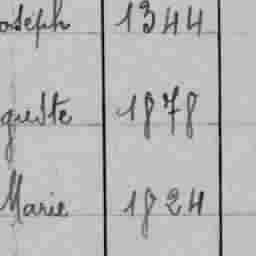 oseph 1844
guste 1878
Marie 1824